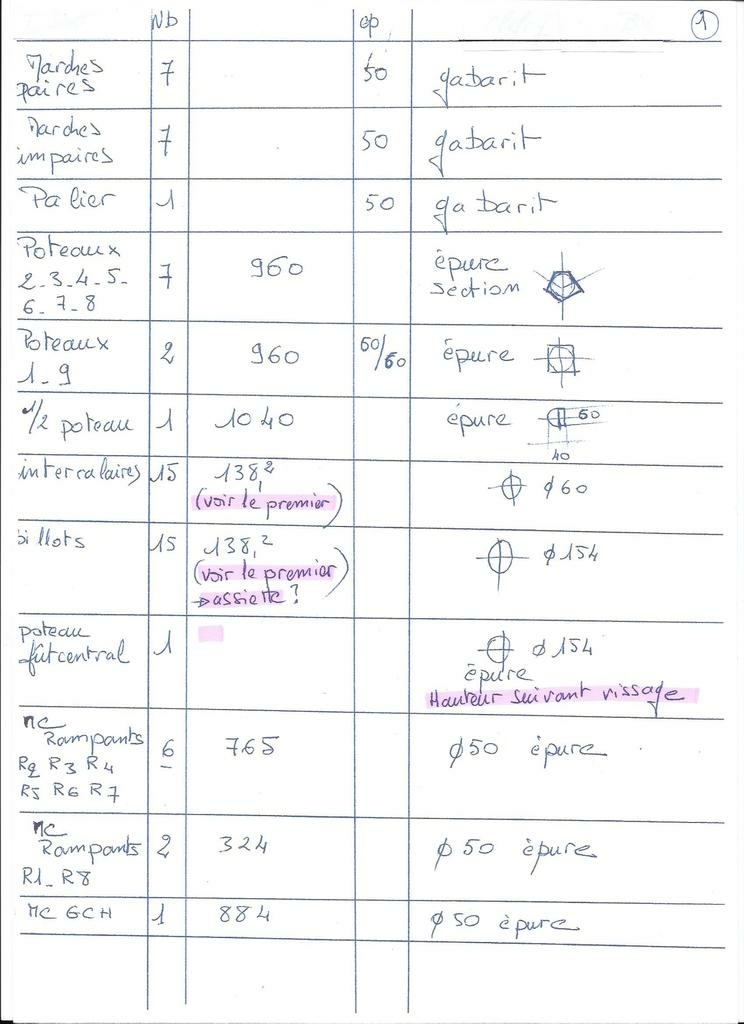 Nb ep 1
Marches paires 7 50 gabarit
Marches impaires 7 50 gabarit
Palier 1 50 gabarit
Poteaux 2-3-4-5-6-7-8 7 960 épure section
Poteaux 1-9 2 960 60/60 épure
1/2 poteau 1 1040 épure 60
40
intercalaires 15 138,2 (voir le premier) φ60
billots 15 138,2 (voir le premier → assiette ?) φ154
poteau fût central 1 φ154 épure
Hauteur suivant vissage
MC Rampants R2 R3 R4 R5 R6 R7 6 765 φ50 épure
MC Rampants R1-R8 2 324 φ50 épure
MC GCH 1 884 φ50 épure